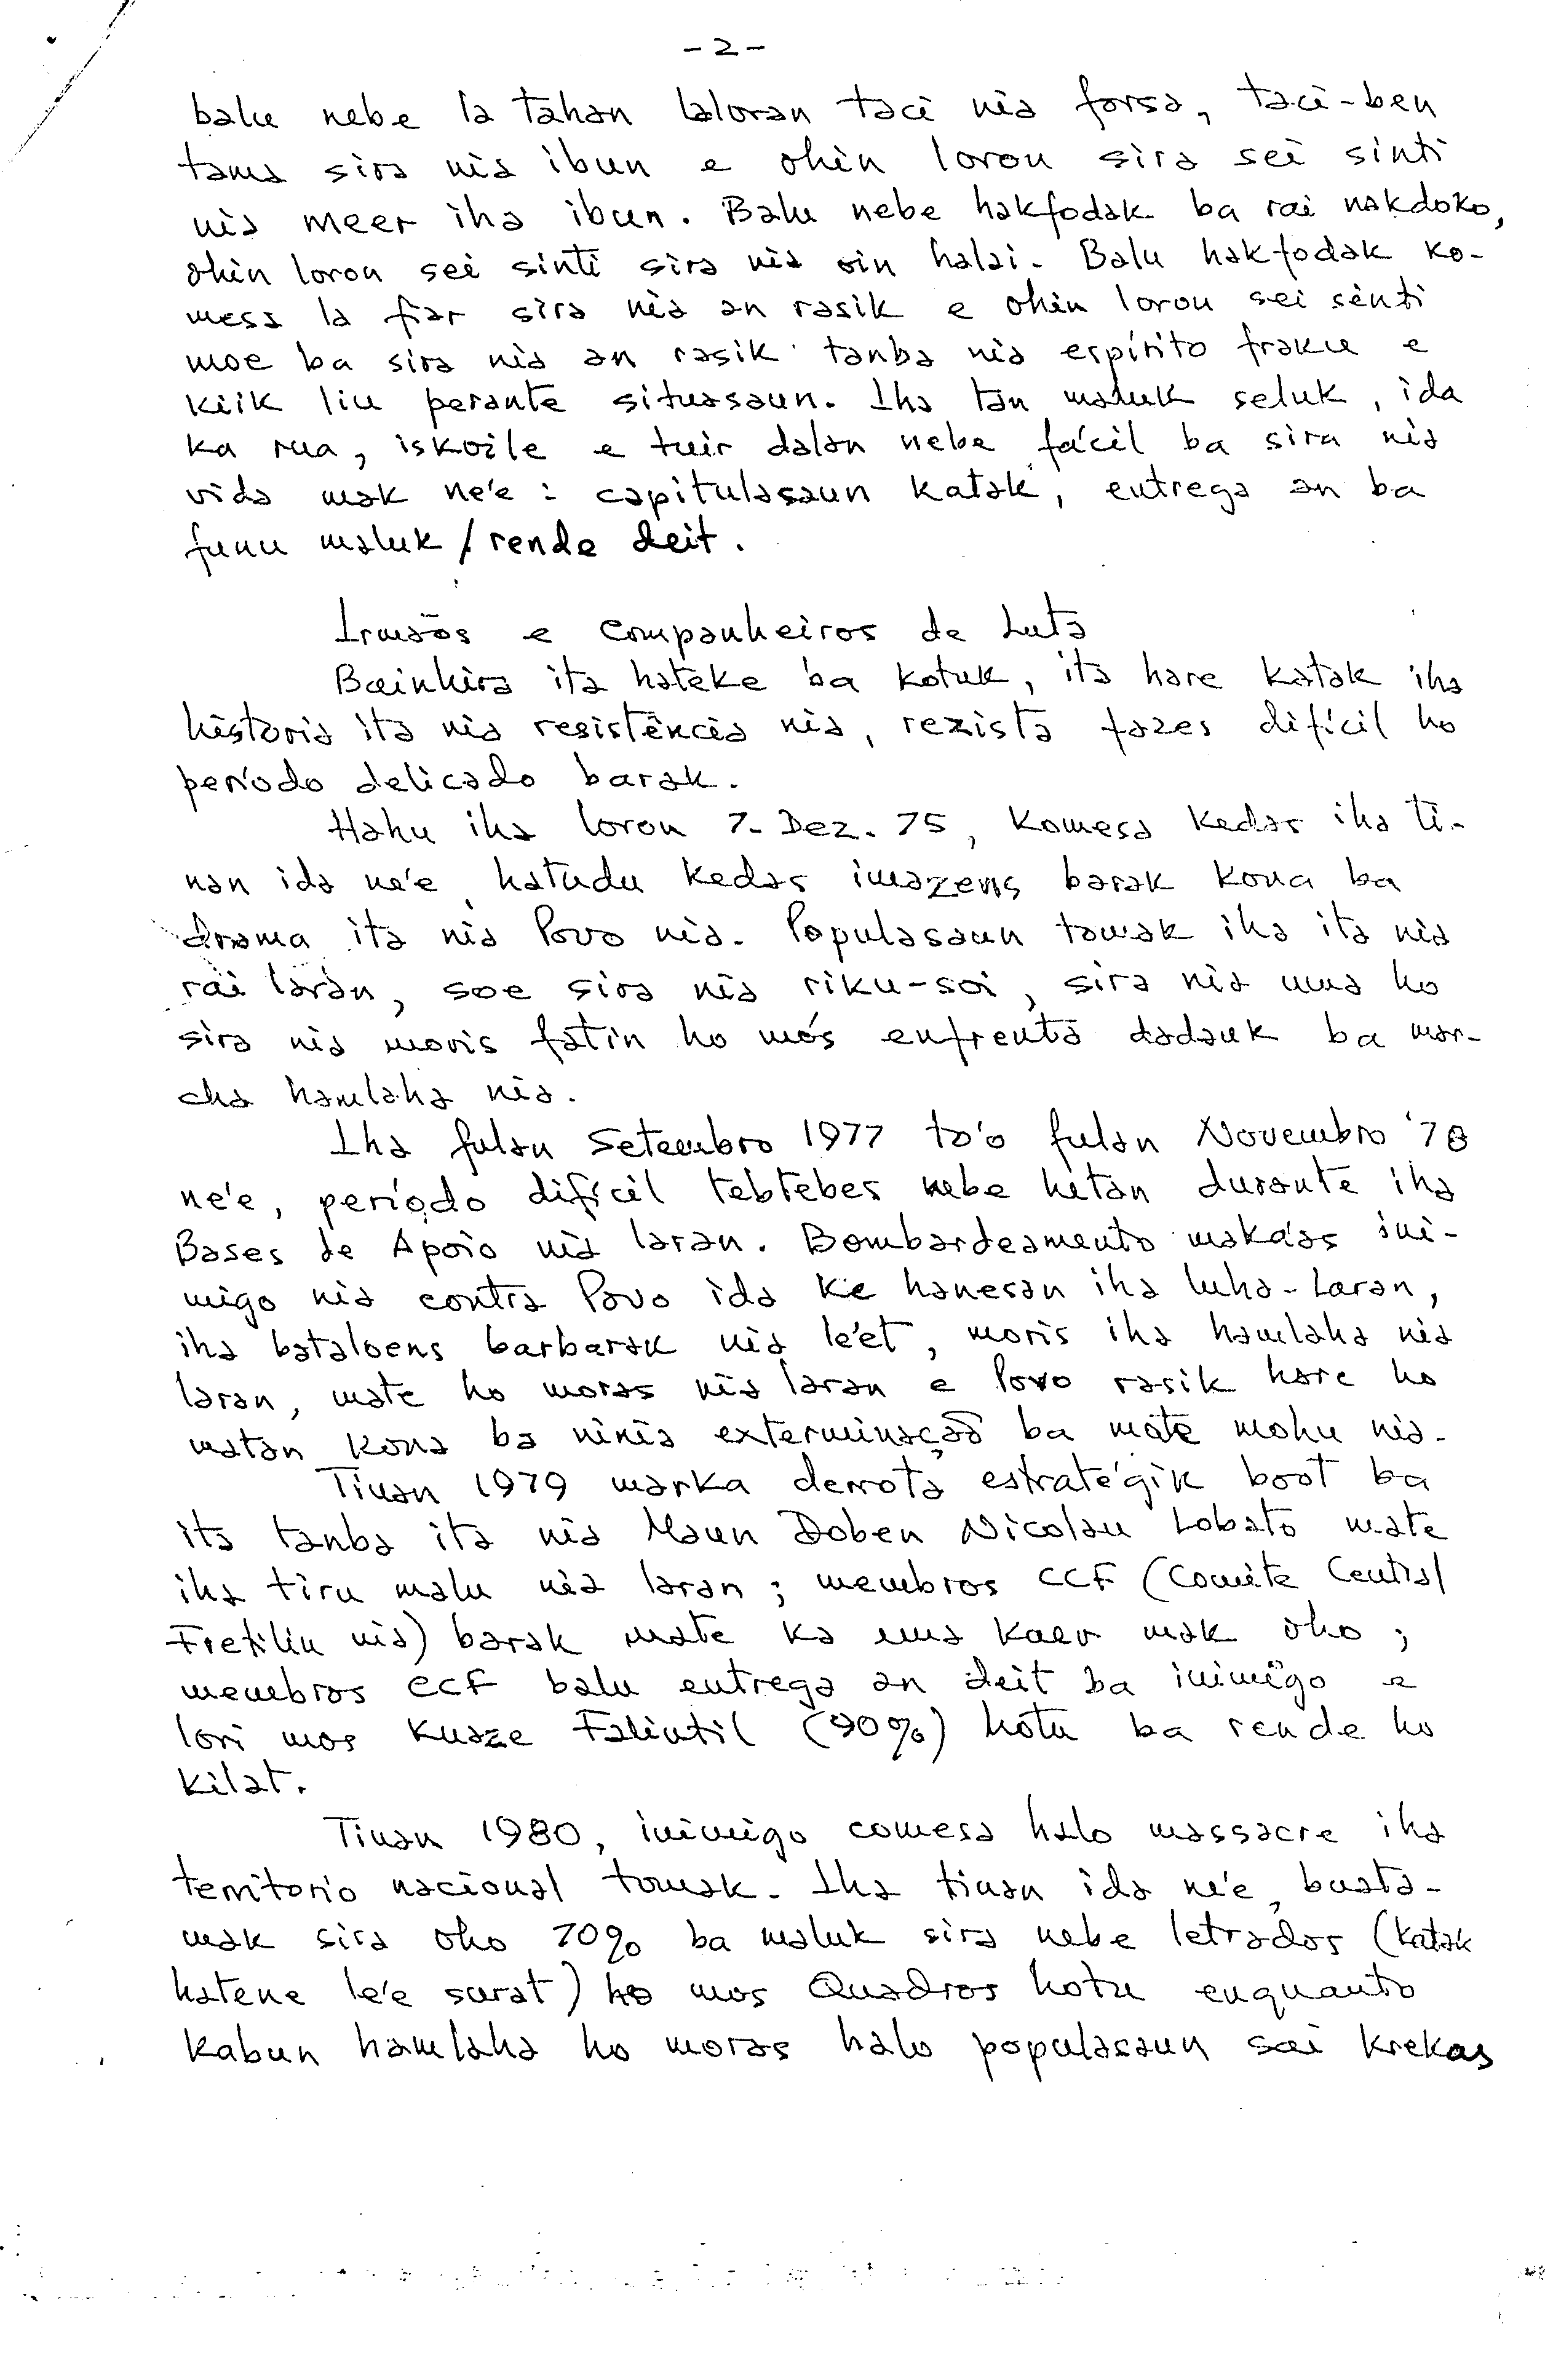 - 2 -
balu nebe la tahan laloran taci nia forsa, taci-ben
tama sira nia ibun e ohin loron sira sei sinti
nia meer iha ibun. Balu nebe hakfodak ba rai nakdoko,
ohin loron sei sinti sira nia oin halai. Balu hakfodak ko-
mesa la fiar sira nia an rasik e ohin loron sei sènti
moe ba sira nia an rasik tanba nia espírito fraku e
kiik liu perante situasaun. Iha tan maluk seluk, ida
ka rua, iskoile e tuir dalan nebe fácil ba sira nia
vida mak ne'e : capitulasaun katak, entrega an ba
funu maluk / rende deit.
Irmãos e Companheiros de Luta
Bainhira ita hateke ba kotuk, ita hare katak iha
historia ita nia resistência nia, rezista fazes difícil ho
período delicado barak.
Hahu iha loron 7. Dez. 75, komesa kedas iha ti-
nan ida ne'e, hatudu kedas imazens barak kona ba
drama ita nia Povo nia. Populasaun tomak iha ita nia
rai laran, soe sira nia riku-soi, sira nia uma ho
sira nia moris fatin ho mós enfrenta dadauk ba mar-
cha hamlaha nia.
Iha fulan Setembro 1977 to'o fulan Novembro '78
ne'e, período difícil tebtebes nebe hetan durante iha
Bases de Apoio nia laran. Bombardeamento maka'as ini-
migo nia contra Povo ida ke hanesan iha luha-laran,
iha bataloens barbarak nia le'et, moris iha hamlaha nia
laran, mate ho moras nia laran e Povo rasik hare ho
matan kona ba ninia exterminação ba mate mohu nia.
Tinan 1979 marka derrota estratégik boot ba
ita tanba ita nia Maun Doben Nicolau Lobato mate
iha tiru malu nia laran ; membros CCF (Comite Central
Fretilin nia) barak mate ka ema kaer mak oho ;
membros CCF balu entrega an deit ba inimigo e
lori mos kuaze Falintil (90%) hotu ba rende ho
kilat.
Tinan 1980, inimigo comesa halo massacre iha
territorio nacional tomak. Iha tinan ida ne'e, buata-
mak sira oho 70% ba maluk sira nebe letrados (katak
hatene le'e surat) ho mos Quadros hotu enquanto
kabun hamlaha ho moras halo populasaun sai krekas